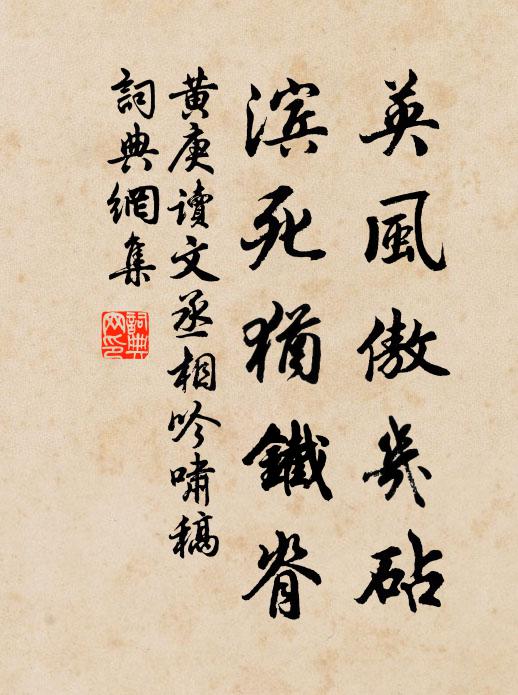 英風傲幾砧
滨死猶鐵脊
黄庚讀文丞相吟嘯稿
詞典網集
詞典
网印